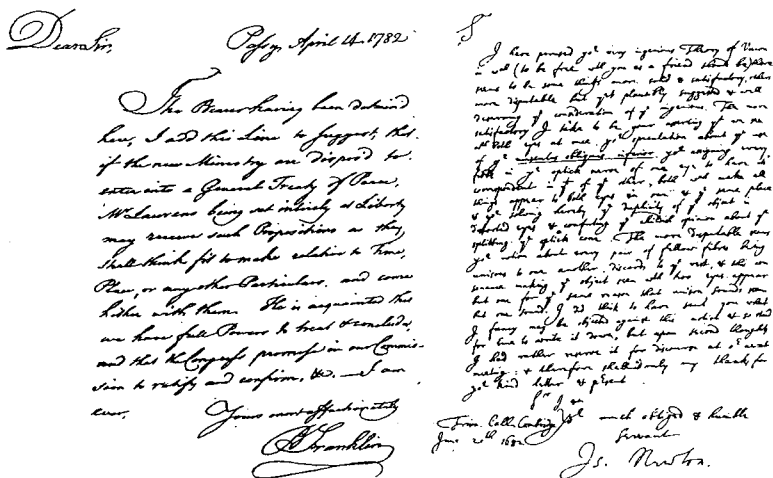 Dear Sir,
Passy, April 14. 1782
The Bearer having been detained
here, I add this Line to suggest, that
if the new Ministry are dispos'd to
enter into a General Treaty of Peace,
Mr Laurens being set intirely at Liberty
may receive such Propositions as they
shall think fit to make relative to Time,
Place, or any other Particulars, and come
hither with them. He is acquainted that
we have full Powers to treat & conclude,
and that the Congress promise in our Commis-
sion to ratify and confirm, &c. — I am
ever,
Yours most affectionately
B Franklin
Sr
I have perused yor very ingenious Theory of Vision
in wch (to be free with you as a friend should be) there
seems to be some things more solid & satisfactory, others
more disputable but yet plausibly suggested & well
deserving ye consideration of ye ingenious. The more
satisfactory I take to be your asserting yt we see
with both eyes at once, yor speculation about ye use
of ye musculus obliquus inferior, yor assigning every
fibre in ye optick nerve of one eye to have its
correspondent in yt of ye other, both wch make all
things appear to both eyes in one & ye same place
& yor solving hereby ye duplicity of ye object in
distorted eyes & confuting ye childish opinion about ye
splitting ye optick cone. The more disputable seems
yor notion about every pair of fellow fibres being
unisons to one another, discords to ye rest, & this con
sonance making ye object seen with two eyes appear
but one for ye same reason that unison sounds seem
but one sound. I did think to have sent you what
I fancy may be objected against this notion & so staid
for time to write it down, but upon second thoughts
I had rather reserve it for discourse at or next
meeting: & therefore shall add only my thanks for
yor kind letter & present.
Sr I am
Yor much obliged & humble
Servant
Trin. Coll. Cambridge
June 20th 1682.
Is. Newton.